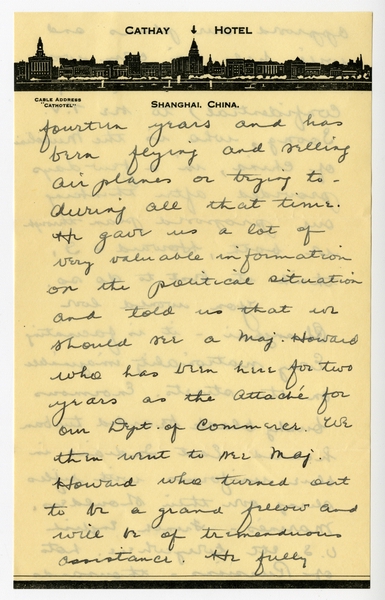 CATHAY HOTEL
CABLE ADDRESS
"CATHOTEL"
SHANGHAI, CHINA.
fourteen years and has
been flying and selling
air planes or trying to -
during all that time.
He gave us a lot of
very valuable information
on the political situation
and told us that we
should see a Maj. Howard
who has been here for two
years as the Attaché for
our Dept. of Commerce. We
then went to see Maj.
Howard who turned out
to be a grand fellow and
will be of tremenduous
assistance. He fully